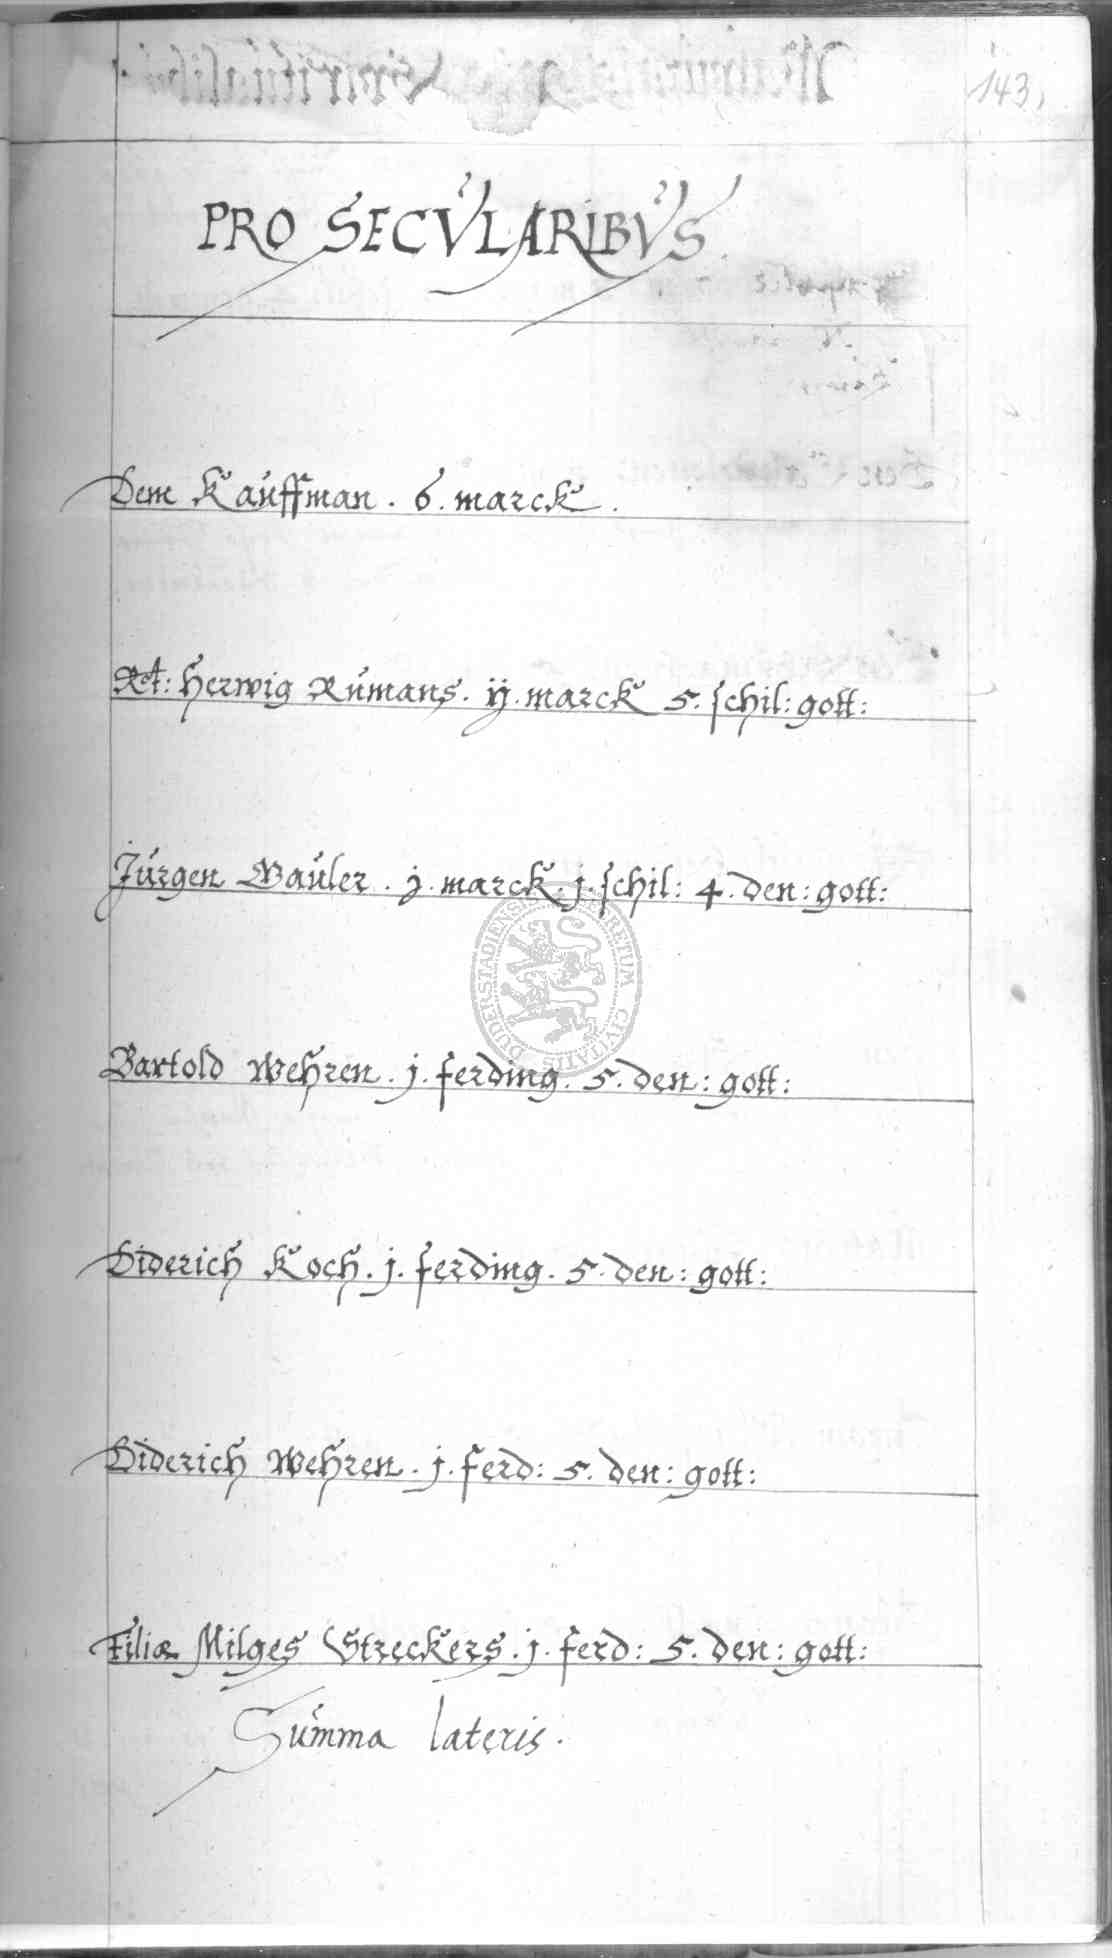 143.
PRO SECVLARIBVS
Dem Kauffman . 6 . marck .
Herwig Rumans . ij . marck 5 . schil : gott :
Jurgen Wauler . j . marck . j . schil : 4 . den : gott :
Bartold Wehren . j . ferding . 5 . den : gott :
Diderich Koch . j . ferding . 5 . den : gott :
Diderich Wehren . j . ferd : 5 . den : gott :
Filiæ Milges Streckers . j . ferd : 5 . den : gott :
Summa lateris .